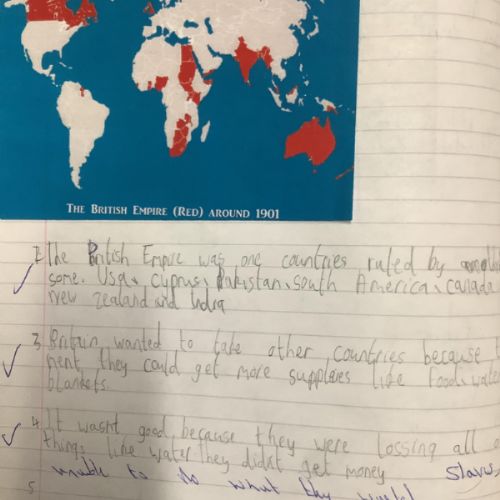 THE BRITISH EMPIRE (RED) AROUND 1901
2. The British Empire was one countries ruled by
some. Usa, Cyprus, Pakistan, South America, canada
New zealand and India
3. Britain wanted to take other countries because
ment they could get more suppliers like food, water
blankets.
4. It wasnt good because they were lossing all
things like water they didnt get money Slaves
unable to do what they would
5